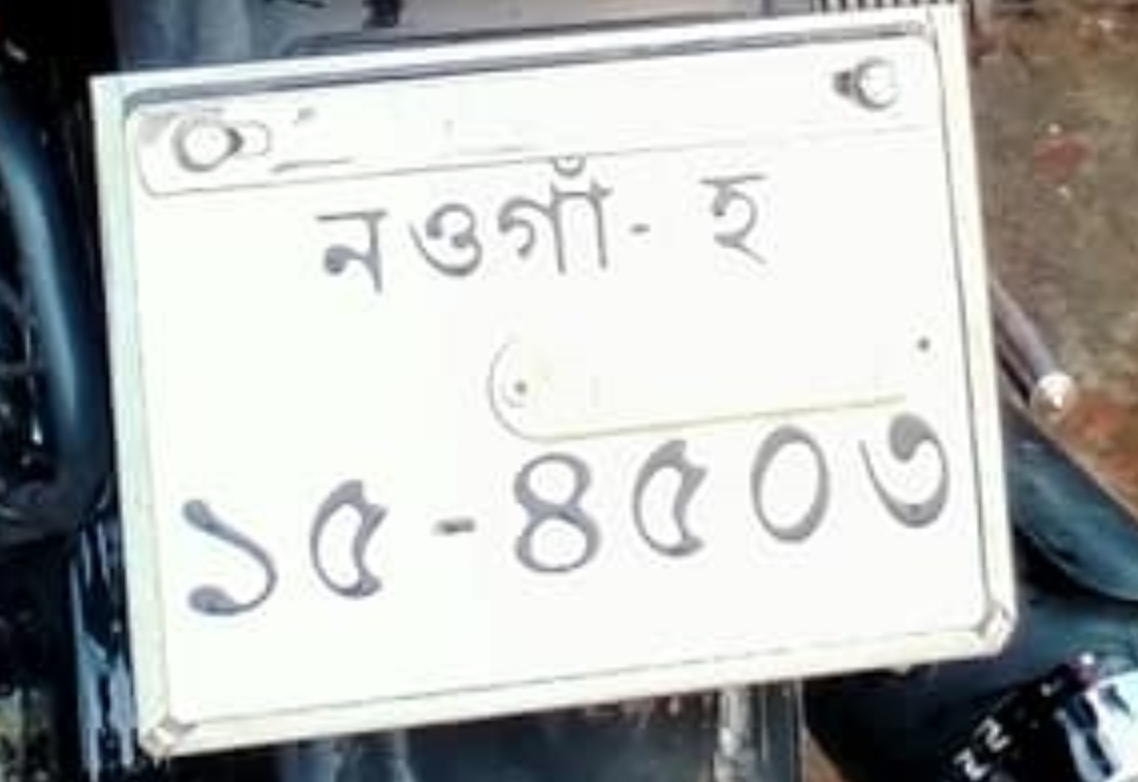 নওগাঁ- হ
১৫-৪৫০৩